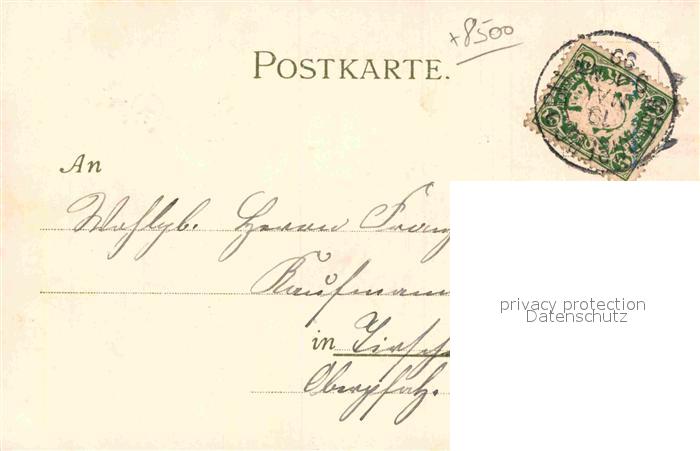 +8500
POSTKARTE.
An
Wohlgb. Herrn Franz
Kaufmann
in Tirsch
Oberpfalz.
privacy protection
Datenschutz